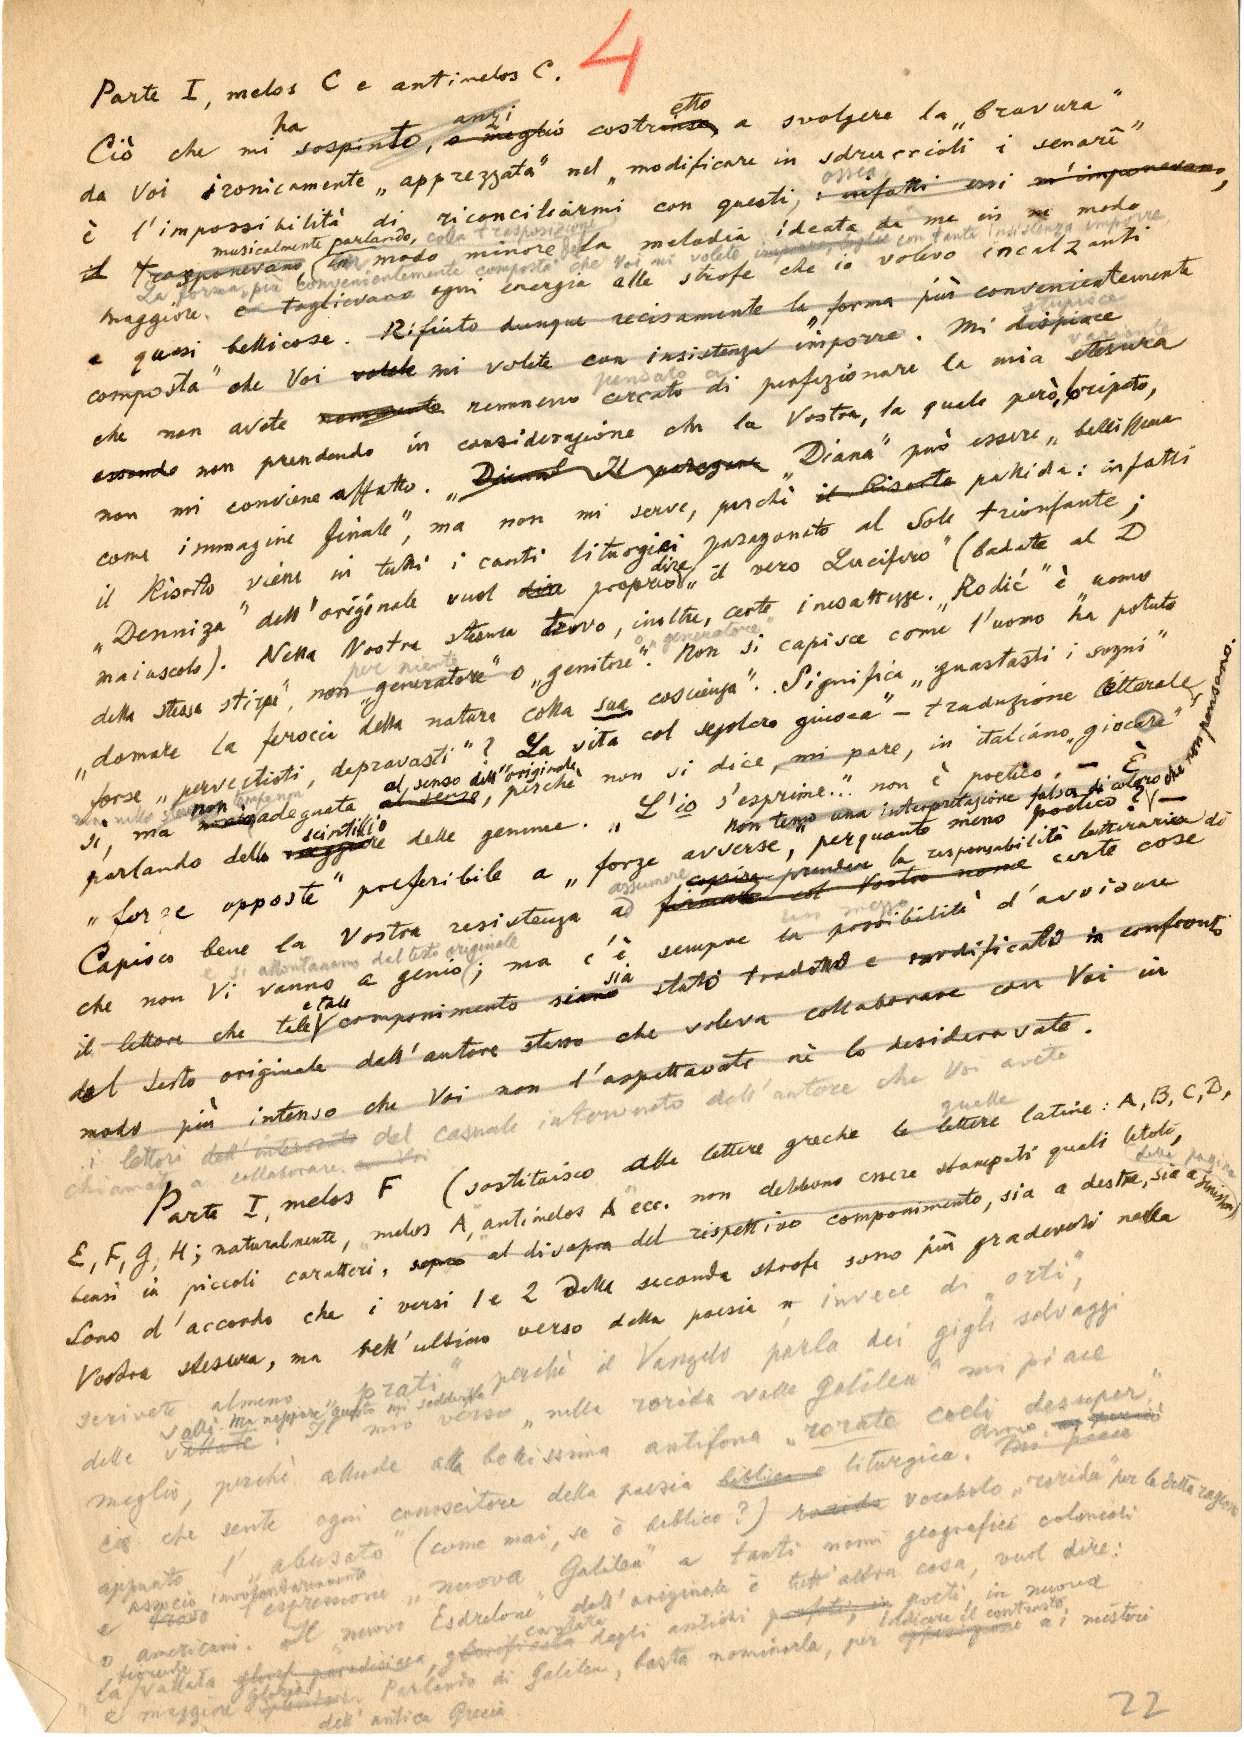 4
Parte I, melos C e antimelos C.
ha anzi etto
Ciò che mi sospinto, o meglio costrinse, a svolgere la „bravura“
da Voi ironicamente „apprezzata“ nel „modificare in sdruccioli i senari“
è l'impossibilità di riconciliarmi con questi; infatti essi m'imponevano,
musicalmente parlando, colla trasposizione
il trasponevano, in modo minore la melodia ideata da me in modo
La forma „più convenientemente composta“ che Voi mi volete con tanta insistenza imporre,
maggiore. e toglievano ogni energia alle strofe che io volevo incalzanti
e quasi bellicose. Rifiuto dunque recisamente la „forma più convenientemente
stupisce
composta“ che Voi mi volete con insistenza imporre. Mi dispiace
pensato a variante
che non avete nemmeno cercato di perfezionare la mia stesura
essendo non prendendo in considerazione che la Vostra, la quale però, ripeto,
non mi conviene affatto. „Diana“ può essere „bellissima
come immagine finale“, ma non mi serve, perchè il Risorto pallida: infatti
il Risorto viene in tutti i canti liturgici paragonato al Sole trionfante;
dire
„Denniza“ dell'originale vuol dire proprio „il vero Lucifero“ (badate al D
maiuscolo). Nella Vostra stesura trovo, inoltre, certe inesattezze. „Rodić“ è uomo
per niente o „generatore“
della stessa stirpe, non „generatore“ o „genitore“. Non si capisce come l'uomo „ha potuto
„domare la ferocia della natura colla sua coscienza“. Significa „guastasti i sogni“
forse „pervertisti, depravasti“? La vita col sepolcro giuoca“ – traduzione letterale,
non al senso dell'originale,
sì, ma adeguata al senso, perchè non si dice, mi pare, in italiano „giocare“
scintillio
parlando dello raggiare delle gemme. „L'io s'esprime...“ non è poetico. – È
Non temo una interpretazione falsa di coloro che non pensano.
„forze opposte“ preferibile a „forze avverse“, perquanto meno poetico? –
assumere capire prendere la responsabilità letteraria di
Capisco bene la Vostra resistenza a firmare col Vostro nome certe cose
e si allontanano dal testo originale un mezzo
che non Vi vanno a genio; ma c'è sempre la possibilità d'avvisare
e tale sia
il lettore che tale componimento siano stato tradotto e modificato in confronto
del testo originale dall'autore stesso che voleva collaborare con Voi in
modo più intenso che Voi non l'aspettavate nè lo desideravate.
i lettori dell'intervento del casuale intervento dell'autore che Voi avete
chiamato a collaborare.
quelle
Parte I, melos F (sostituisco alle lettere greche le lettere latine: A, B, C, D,
E, F, G, H; naturalmente, „melos A“, „antimelos A“ ecc. non debbono essere stampati quali titoli,
della pagina
bensì in piccoli caratteri, sopra al disopra del rispettivo componimento, sia a destra, sia a sinistra)
Sono d'accordo che i versi 1 e 2 della seconda strofe sono più gradevoli nella
Vostra stesura, ma nell'ultimo verso della poesia n invece di „orti“,
scrivete almeno „prati“ perchè il Vangelo parla dei gigli selvaggi
valli. Ma neppure questo mi soddisfa
delle vallate. Il mio verso „nella rorida valle Galilea“ mi piace
meglio, perchè allude alla bellissima antifona „rorate coeli desuper“,
ciò che sente ogni conoscitore della poesia biblica e liturgica. Amo
appunto l'„abusato“ (come mai, se è biblico?) vocabolo „rorida“ per la detta ragione
associo involontariamente
e trovo l'espressione „nuova Galilea“ a tanti nomi geografici coloniali
o americani. Il „nuovo Esdrelone“ dell'originale è tutt'altra cosa, vuol dire:
fiorente cantata
„la vallata gloria paradisiaca, glorificata dagli antichi profeti, in poeti in nuova
gloria indicare il contrasto
e maggiore splendore. Parlando di Galilea, basta nominarla, per opposizione ai misteri
dell'antica Grecia
22